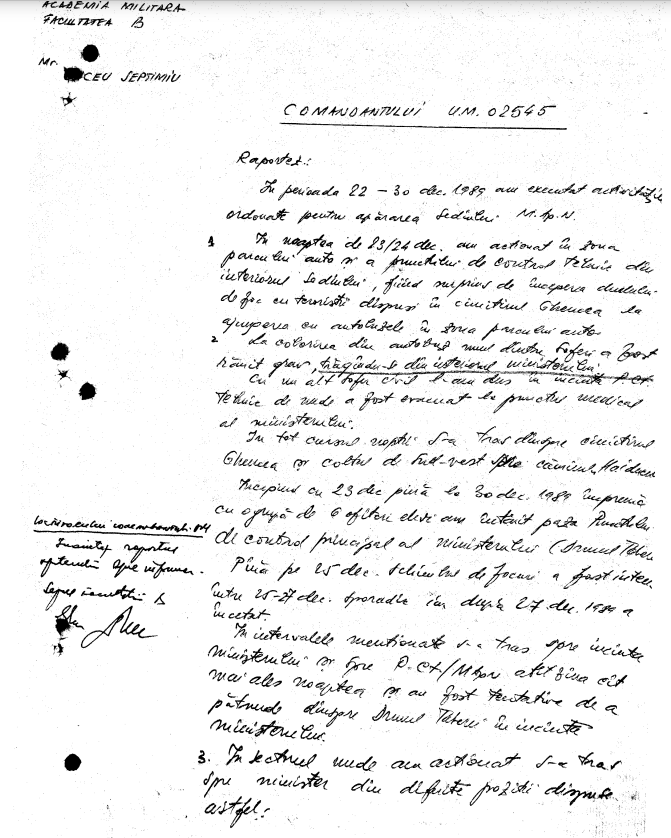 ACADEMIA MILITARA
FACULTATEA B
Mr. CEU SEPTIMIU
COMANDANTULUI U.M. 02545
Raportez:
În perioada 22 – 30 dec. 1989 am executat activități
ordonate pentru apărarea sediului M.Ap.N.
1 În noaptea de 23/24 dec. am acționat în zona
parcului auto și a punctului de control tehnic din
interiorul sediului, fiind surprins de începerea duelului
de foc cu teroriștii dispuși în cimitirul Ghencea la
ajungerea cu autobuzele în zona parcului auto.
2 La coborîrea din autobuz unul dintre șoferi a fost
rănit grav, trăgîndu-se din interiorul ministerului.
Cu un alt șofer civil l-am dus în incinta P.CT.
tehnic de unde a fost evacuat la punctul medical
al ministerului.
În tot cursul nopții s-a tras dinspre cimitirul
Ghencea și colțul de sud-vest spre căminul Haiducu
Începînd cu 23 dec pînă la 30 dec. 1989 împreună
cu o grupă de 6 ofițeri elevi am întărit paza Punctului
de control principal al ministerului (Drumul Taberei
Pînă pe 25 dec. schimbul de focuri a fost intens
între 25-27 dec. sporadic iar după 27 dec. 1989 a
încetat.
În intervalele menționate s-a tras spre incinta
ministerului și spre P.CT/MApN atît ziua cît
mai ales noaptea și au fost tentative de a
pătrunde dinspre Drumul Taberei în incinta
ministerului.
3. În sectorul unde am acționat s-a tras
spre minister din diferite poziții dispuse
astfel:
Înaintez raportul
Șeful facultății B